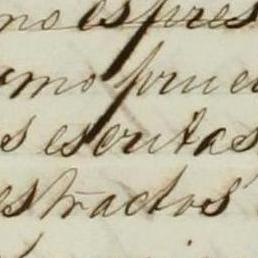 mo espres
omo prue
s escritas
estractos